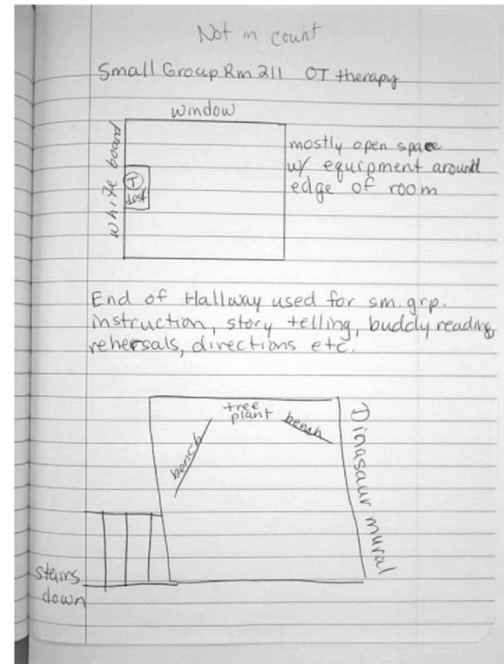 Not in count
Small Group Rm 211 OT therapy
window
White board
T
desk
mostly open space
w/ equipment around
edge of room
End of Hallway used for sm. grp.
instruction, story telling, buddy reading,
rehersals, directions etc.
tree
plant
bench
bench
Dinasaur mural
stairs
down